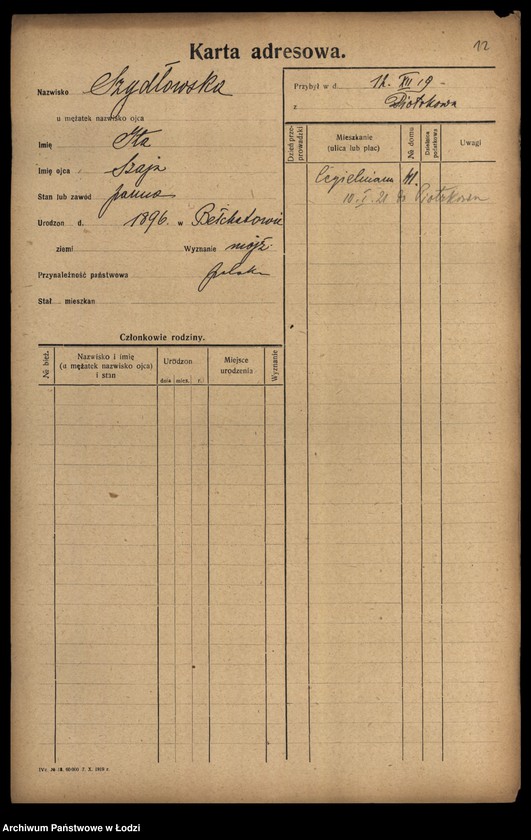 12
Karta adresowa.
Nazwisko Szydłowska
u mężatek nazwisko ojca
Imię Ita
Imię ojca Szaja
Stan lub zawód panna
Urodzon d. 1896. w Bełchatowie
ziemi Wyznanie mojż.
Przynależność państwowa polska
Stał mieszkan
Przybył w d. 12. XII 19
z Piotrkowa
Dzień przeprowadzki
Mieszkanie
(ulica lub plac)
№ domu
Dzielnica państwowa
Uwagi
Cegielniana
10. I. 21 do Piotrkowa
Członkowie rodziny.
№ bież.
Nazwisko i imię
(u mężatek nazwisko ojca)
i stan
Urodzon
dnia mies. r.
Miejsce
urodzenia
Wyznanie
7. X. 1919 r.
Archiwum Państwowe w Łodzi